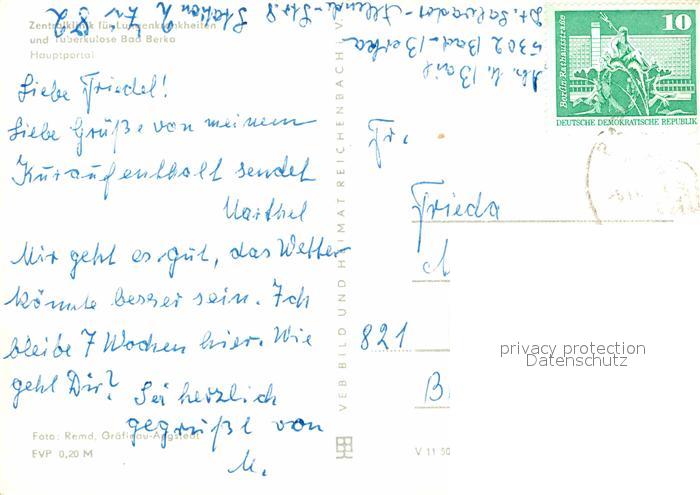 Zentralklinik für Lungenkrankheiten
und Tuberkulose Bad Berka
Hauptportal
Liebe Friedel!
Liebe Grüße von meinem
Kuraufenthalt sendet
Marthel
Mir geht es gut, das Wetter
könnte besser sein. Ich
bleibe 7 Wochen hier. Wie
geht Dir? Sei herzlich
gegrüßt von
M.
Foto: Remd, Gräfinau-Angstedt
EVP 0,20 M
VEB BILD UND HEIMAT REICHENBACH I. V.
V 11 50
5302 Bad-Berka
Dr. Salvador-Allende-Str. 8
Station 2
Berlin Rathausstraße
10
DEUTSCHE DEMOKRATISCHE REPUBLIK
Fr.
Frieda
M
821
B
privacy protection
Datenschutz